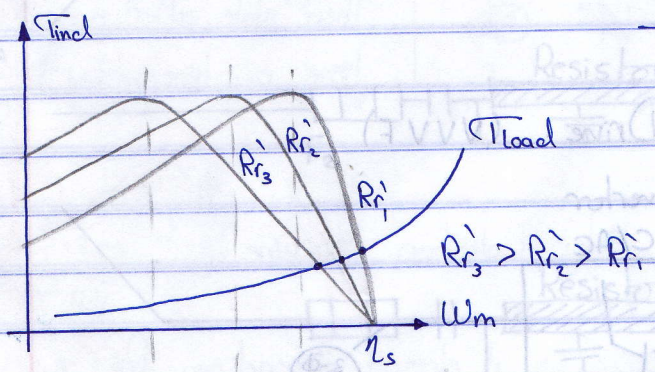 Tind
Rr3'
Rr2'
Rr1'
TLoad
Rr3' > Rr2' > Rr1'
ωm
ηs